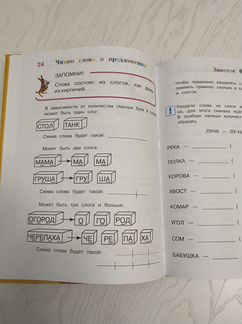 24 Читаю слова и предложения
ЗАПОМНИ!
Слова состоят из слогов, как дом
из кирпичей.
В зависимости от количества гласных букв в слове
может быть один слог:
СТОЛ ТАНК
Схема слова будет такой:
Может быть два слога:
МАМА МА МА
ГРУША ГРУ ША
Схема слова будет такой:
Может быть три слога и больше:
ОГОРОД О ГО РОД
ЧЕРЕПАХА ЧЕ РЕ ПА ХА
Схема слова будет такой:
Чтобы правильно разделить
помнить правило: сколько в
и слогов.
Раздели слова на слоги
но, для этого сначала
В скобках напиши
образец.
ЛУНА — ЛУ-
РЕКА — (
ПОЛКА — (
КОРОВА — (
ХВОСТ — (
КОМАР — (
УГОЛ — (
СОМ — (
БАБУШКА — (